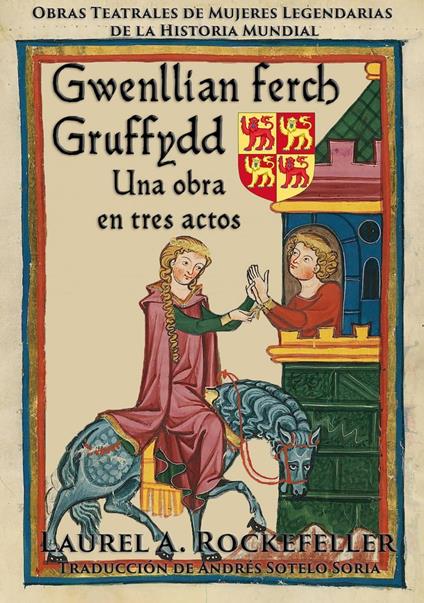 Obras Teatrales de Mujeres Legendarias
de la Historia Mundial
Gwenllian ferch
Gruffydd
Una obra
en tres actos
Laurel A. Rockefeller
Traducción de Andrés Sotelo Soria